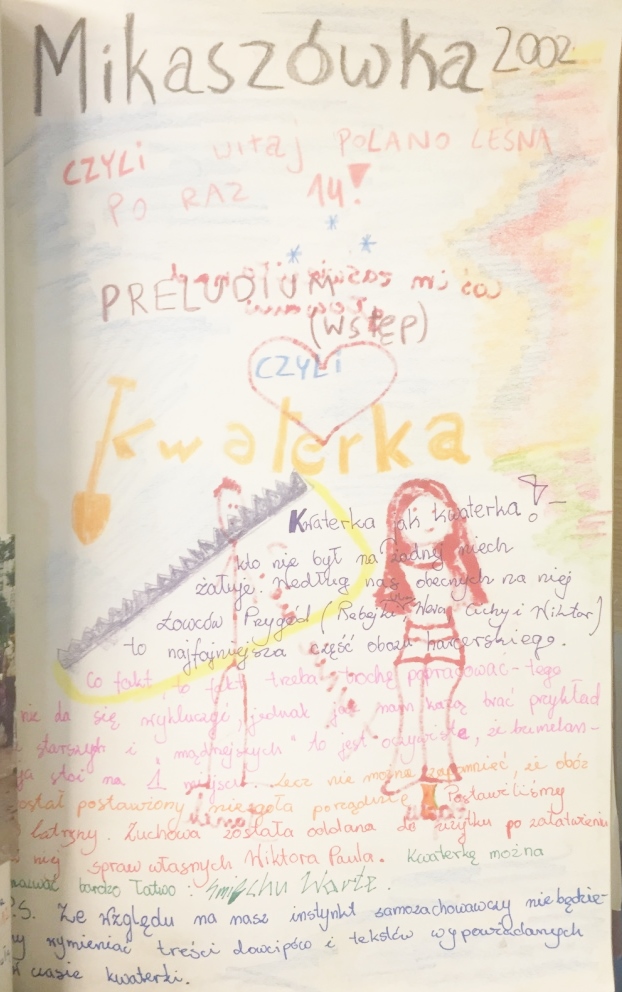 Mikaszówka 2002
CZYLI witaj POLANO LEŚNA
PO RAZ 14!
coś mi
PRELUDIUM
(WSTĘP)
CZYLI
Kwaterka
Kwaterka jak kwaterka!
kto nie był na żadnej niech
żałuje. Według nas obecnych na niej
Łowców Przygód (Rebejki, Cichy i Wiktor)
to najfajniejsza część obozu harcerskiego.
Co fakt, to fakt trzeba trochę popracować - tego
nie da się wykluczyć, jednak jak nam każą brać przykład
i starszych i "mądrzejszych" to jest oczywiste, że bumelan-
ja stoi na 1 miejscu. Lecz nie można zapomnieć, że obóz
został postawiony porządnie Postawiliśmy
latryny. Zuchowa została oddana do użytku po załatwieniu
w niej spraw własnych Wiktora Paula. Kwaterkę można
nazwać bardzo łatwo: Śmiechu Warte.
P.S. Ze względu na nasz instynkt samozachowawczy nie będzie-
my wymieniać treści dowcipów i tekstów wypowiadanych
w czasie kwaterki.